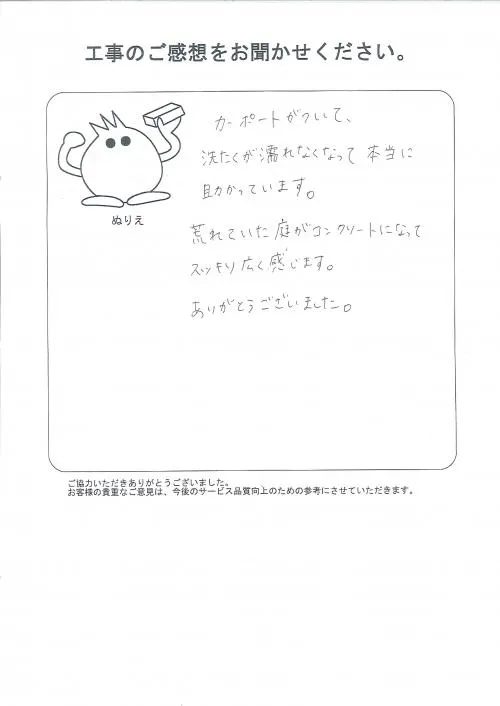 工事のご感想をお聞かせください。
カーポートがついて、
洗たくが濡れなくなって本当に
助かっています。
ぬりえ
荒れていた庭がコンクリートになって
スッキリ広く感じます。
ありがとうございました。
ご協力いただきありがとうございました。
お客様の貴重なご意見は、今後のサービス品質向上のための参考にさせていただきます。